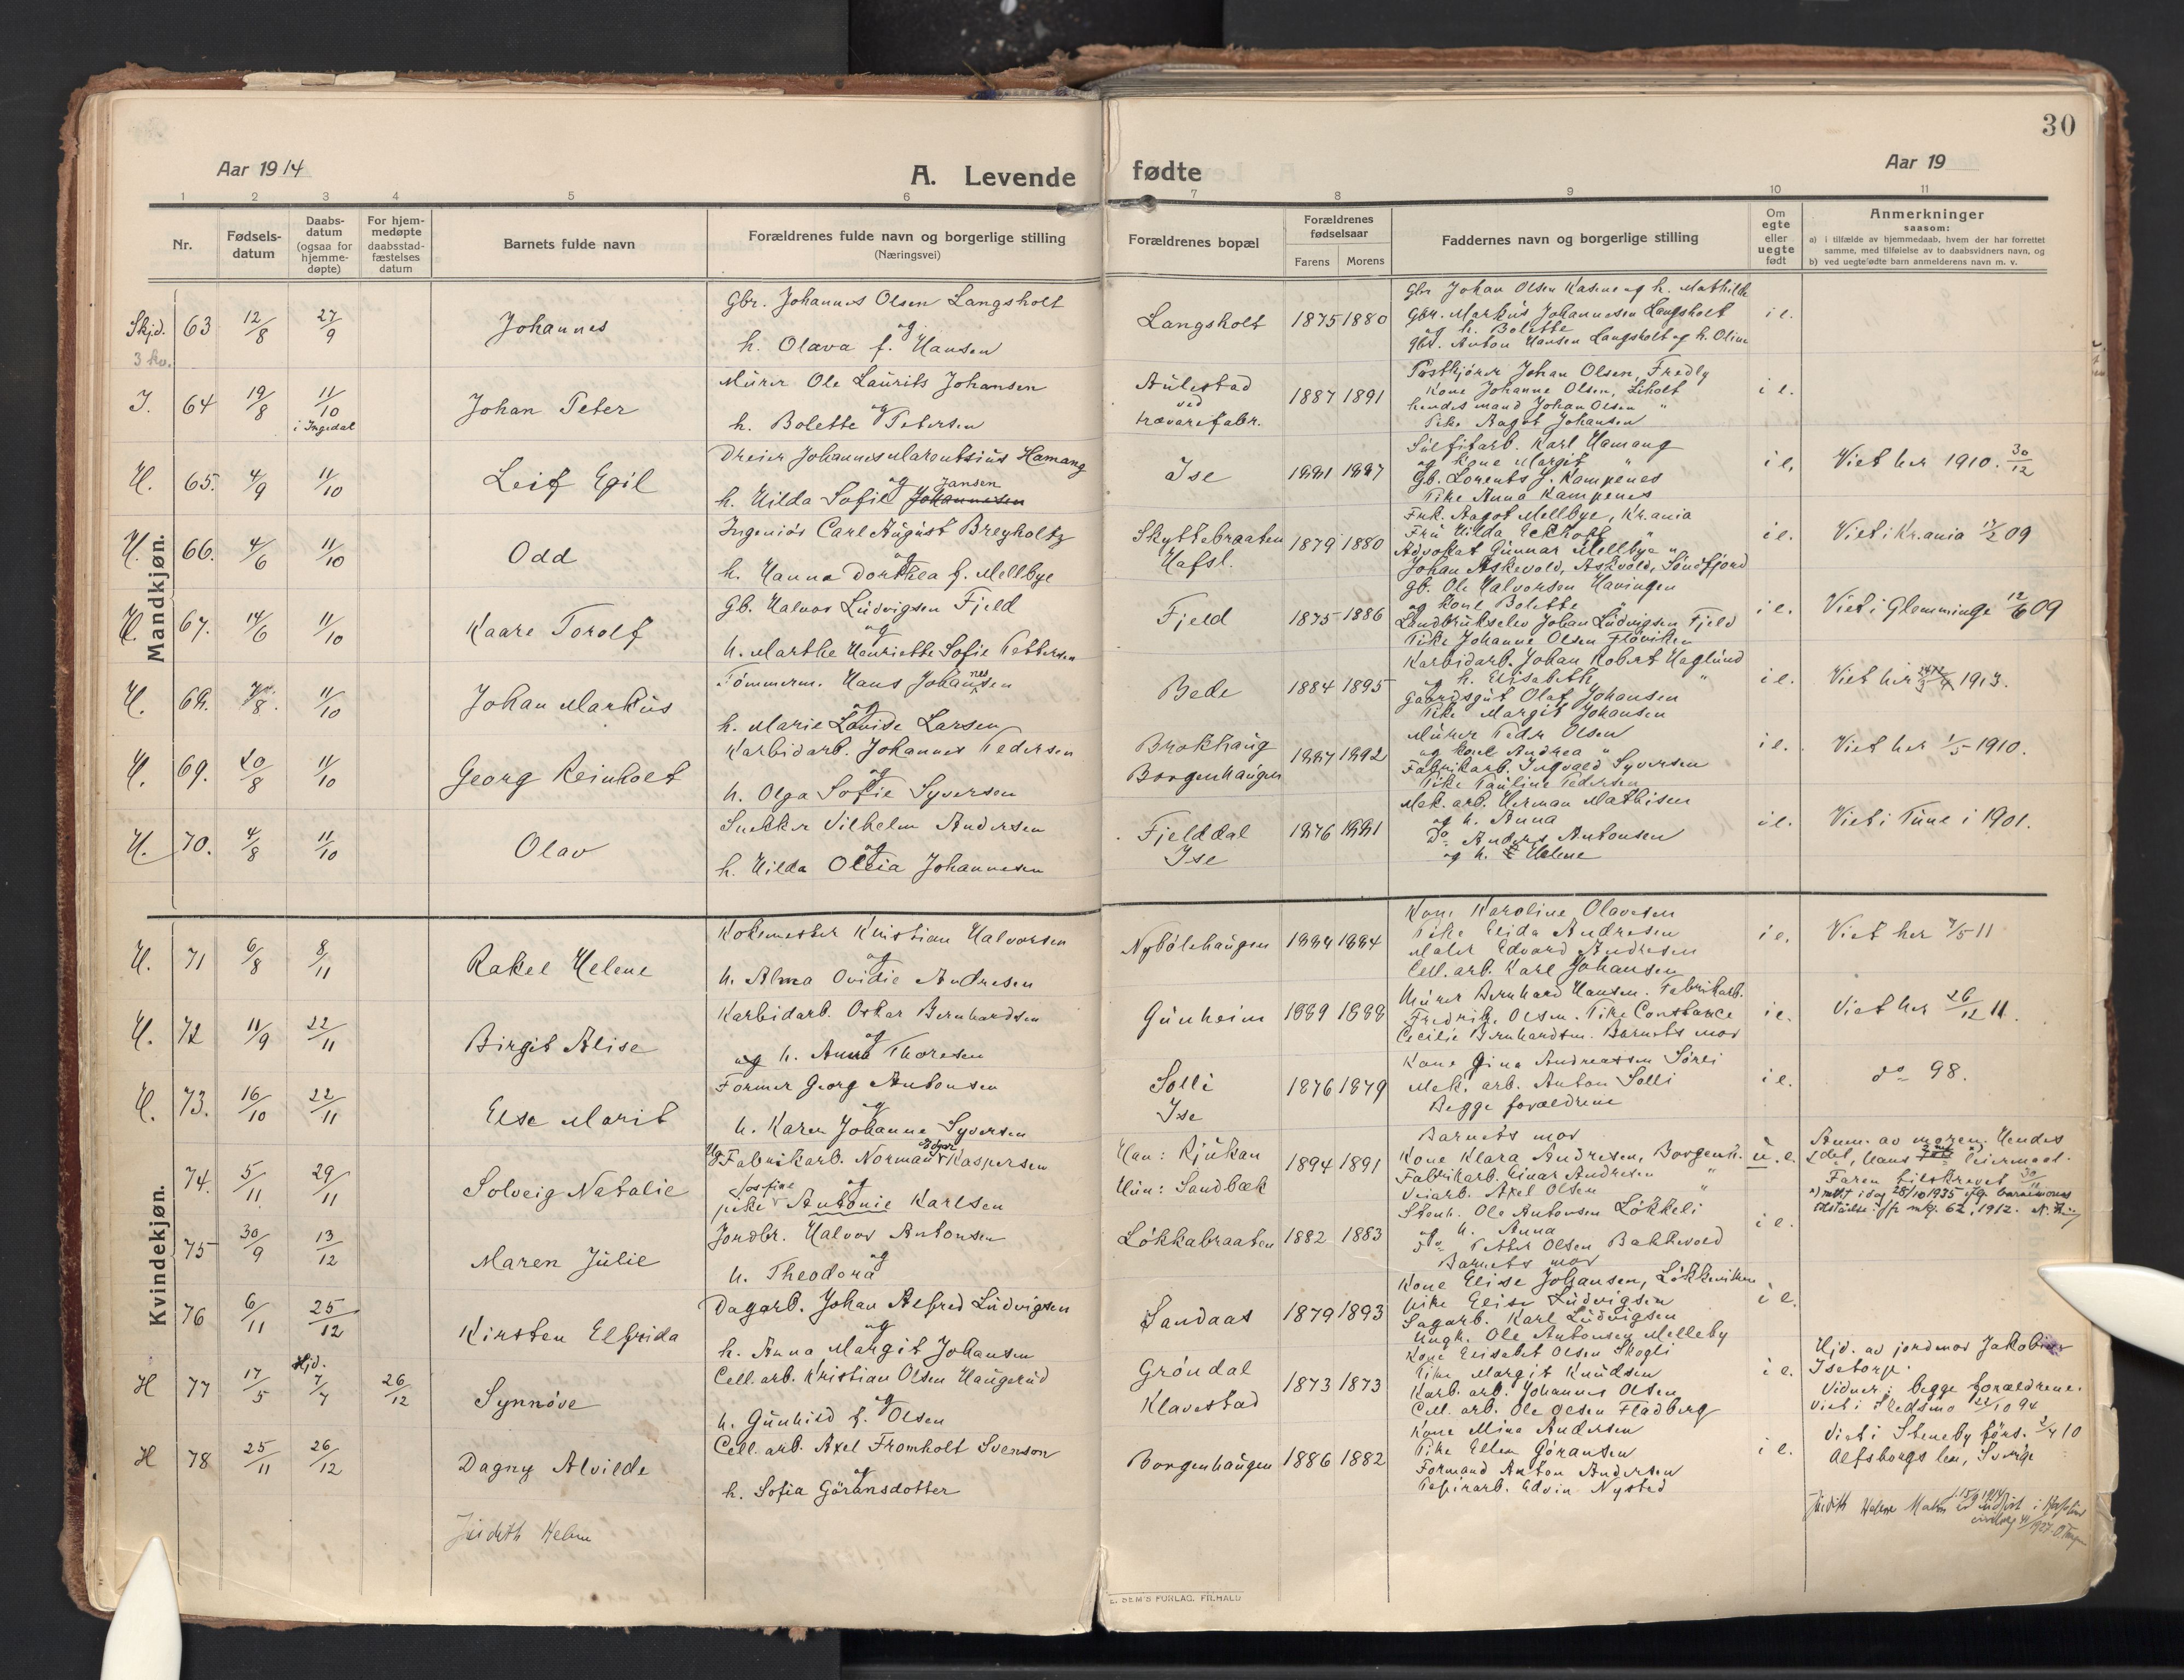 30
Aar 1914
A. Levende fødte
Aar 19
1 2 3 4 5 6 7 8 9 10 11
Nr.
Fødsels-
datum
Daabs-
datum
(ogsaa for
hjemme-
døpte)
For hjem-
medøpte
daabsstad-
fæstelses
datum
Barnets fulde navn
Forældrenes fulde navn og borgerlige stilling
(Næringsvei)
Forældrenes bopæl
Forældrenes
fødselsaar
Farens Morens
Faddernes navn og borgerlige stilling
Om
egte
eller
uegte
født
Anmerkninger
saasom:
a) i tilfælde av hjemmedaab, hvem der har forrettet
samme, med tilføielse av to daabsvidners navn, og
b) ved uegtefødte barn anmelderens navn m. v.
Mandkjøn.
Skjd. 63 12/8 27/9
3 kv.
Johannes
Gbr. Johannes Olsen Langsholt
og
h. Olava f. Hansen
Langsholt 1875 1880
Gbr Johan Olsen Kasene og h. Mathilde
Gbr. Markus Johannesen Langsholt
og h. Bolette
Gbr. Anton Hansen Langsholt og h. Oline
i e.
I. 64 19/8 11/10
i Ingedal
Johan Peter
Murer Ole Laurits Johansen
og
h. Bolette Petersen
Aulestad
ved
trævarefabr.
1887 1891
Postkjører Johan Olsen, Fredly
Kone Johanne Olsen, Liholt
hendes mand Johan Olsen "
Pike Aagot Johansen
i e.
H. 65. 4/9 11/10
Leif Egil
Dreier Johannes Marentsius Hamang
og Jansen
h. Hilda Sofie Johannesen
Ise 1881 1887
Sulfitarb. Karl Hamang
og kone Margit "
Gb. Lorents J. Kampenes
Pike Anna Kampenes
i e.
Viet her 1910. 30/12
H. 66. 4/6 11/10
Odd
Ingeniør Carl August Breyholtz
og
h. Hanna Dorthea f. Mellbye
Skyttebraaten
Hafsl.
1879 1880
Frk. Aagot Mellbye, Kr.ania
Fru Hilda Eckhoff "
Advokat Gunnar Mellbye "
Johan Askevold, Askvold, Søndfjord
i e.
Viet i Kr.ania 17/2 09
H. 67. 14/6 11/10
Kaare Torolf
Gb. Halvor Ludvigsen Fjeld
og
h. Marthe Henriette Sofie Pettersen
Fjeld 1875 1886
Gb. Ole Halvorsen Havingen
og kone Bolette "
Landbrukselev Johan Ludvigsen Fjeld
Pike Johanne Olsen Fløviken
i e.
Viet i Glemminge 12/6 09
H. 68. 11/10
Johan Markus
Tømmerm. Hans Johannesen
og
h. Marie Lovise Larsen
Bede 1884 1895
Karbidarb. Johan Robert Haglund
og h. Elisabeth "
Gaardsgut Olaf Johansen
Pike Margit Johansen
i e.
Viet her 1913.
H. 69. 20/8 11/10
Georg Reinholt
Karbidarb. Johannes Pedersen
og
h. Olga Sofie Syversen
Brokhaug
Borgenhaugen
1887 1892
Murer Peder Olsen
og kone Andrea "
Fabrikarb. Ingvald Syversen
Pike Pauline Pedersen
i e.
Viet her 1/5 1910.
H. 70. 4/8 11/10
Olav
Snekker Vilhelm Andersen
og
h. Hilda Olia Johannesen
Fjelddal
Ise
1876 1881
Mek. arb. Herman Mathisen
og h. Anna
Do. Anders Antonsen
og h. Helene
i e.
Viet i Tune i 1901.
Kvindekjøn.
H. 71 6/8 8/11
Rakel Helene
Koksmester Kristian Halvorsen
og
h. Alma Ovidie Andresen
Nybølehaugen 1884 1884
Kone Karoline Olavesen
Pike Elida Andresen
Maler Edvard Andresen
Cell. arb. Karl Johansen
i e.
Viet her 7/5 11
H. 72 11/9 22/11
Birgit Alise
Karbidarb. Oskar Bernhardsen
og
og h. Anna Thoresen
Gunheim 1889 1888
Murer Bernhard Hansen. Fabrikarb.
Fredrik Olsen. Pike Constance
Cecilie Bernhardsen. Barnets mor
i e.
Viet her 26/12 11.
H. 73. 16/10 22/11
Else Marit
Former Georg Antonsen
og
h. Karen Johanne Syversen
Solli
Ise
1876 1879
Kone Gina Andreassen Sørli
Mek. arb. Anton Solli
Begge forældrene
i e.
do 98.
74. 5/11 29/11
Solveig Natalie
Ug Fabrikarb. Norman Edgar Kaspersen
Josfine og
pike Antonie Karlsen
Han: Rjukan
Hun: Sandbæk
1894 1891
Barnets mor
Kone Klara Andresen, Borgenh.
Fabrikarb. Einar Andresen "
Veiarb. Axel Olsen "
u. e.
Anm. av moren. Hendes
2det, Hans leiermaal.
Faren tilskrevet 30/11
75 30/9 13/12
Maren Julie
Jordbr. Halvor Antonsen
og
h. Theodora
Løkkabraaten 1882 1883
Stenh. Ole Antonsen Løkkeli
og h. Anna
Do Petter Olsen Bakkevold
Barnets mor
i e.
76 6/11 25/12
Kirsten Elfrida
Dagarb. Johan Alfred Ludvigsen
og
h. Anna Margit Johansen
Sandaas 1879 1893
Kone Elise Johansen, Løkkeviken
Pike Elise Ludvigsen
Sagarb. Karl Ludvigsen
Ungk. Ole Antonsen Melleby
i e.
H 77 17/5 Hjd. 7/7 26/12
Synnøve
Cell. arb. Kristian Olsen Haugerud
og
h. Gunhild f. Olsen
Grøndal
Klavestad
1873 1873
Kone Elisabet Olsen Skogli
Pike Margit Knudsen
Karb. arb. Johannes Olsen
Cell. arb. Ole Olsen Fladberg
i e.
Hjd. av jordmor Jakobine
Isetorp.
Vidner: begge forældrene.
Viet i Skedsmo 22/10 94
H 78 25/11 26/12
Dagny Alvilde
Cell. arb. Axel Fromholt Svenson
og
h. Sofia Göransdotter
Borgenhaugen 1886 1882
Kone Mina Andersen
Pike Ellen Gøransen
Formand Anton Andersen
Papirarb. Edvin Nysted
i e.
Viet i Steneby førs. 2/4 10
Alfsborgs len, Sverige
Judith Helene